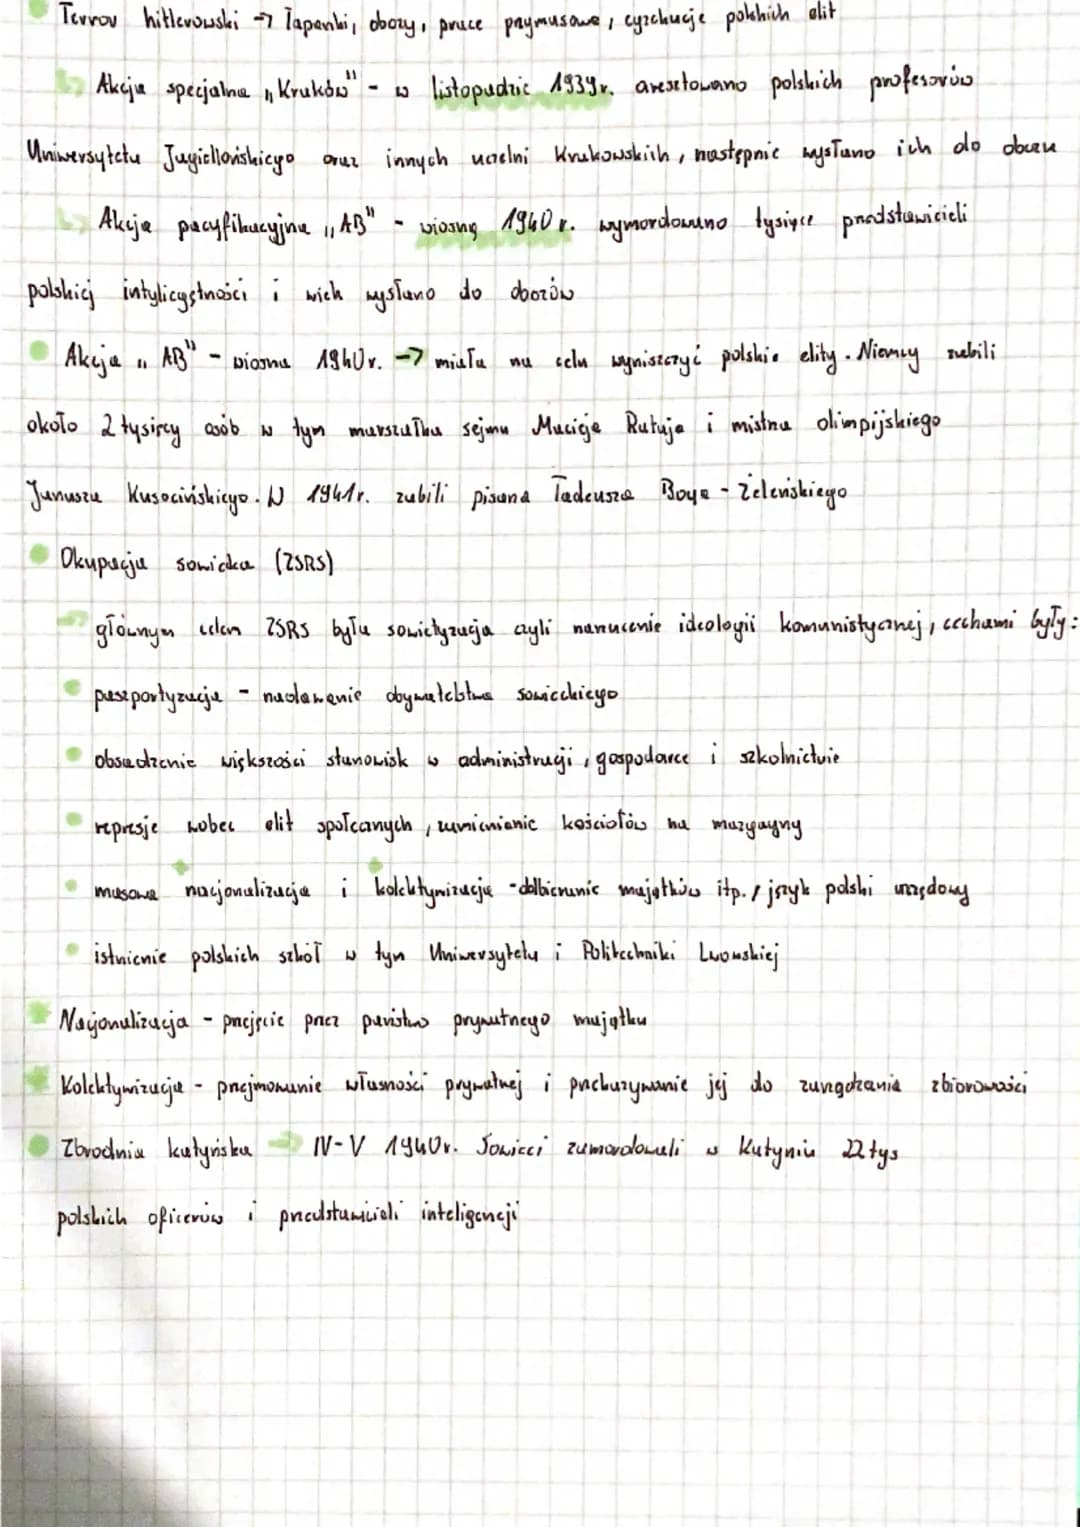 Terror hitlerowski → łapanki, obozy, prace przymusowe, egzekucje polskich elit
Akcja specjalna „Kraków" - w listopadzie 1939r. aresztowano polskich profesorów
Uniwersytetu Jagiellońskiego oraz innych uczelni Krakowskich, następnie wysłano ich do obozu
Akcja pacyfikacyjna „AB" - wiosną 1940 r. wymordowano tysiące przedstawicieli
polskiej intyligętności i wysłano do obozów
Akcja „AB" - wiosna 1940r. → miała na celu wyniszczyć polskie elity. Niemcy zabili
około 2 tysięcy osób w tym marszałka sejmu Macieja Rataja i mistrza olimpijskiego
Janusza Kusocińskiego. W 1941r. zabili pisarza Tadeusza Boya - Żeleńskiego
Okupacja sowicka (ZSRS)
→ głównym celem ZSRS była sowietyzacja czyli narzucenie ideologii komunistycznej, cechami były:
paszportyzacja - nadawanie obywatelstwa sowieckiego
obsadzenie większości stanowisk w administracji, gospodarce i szkolnictwie
represje wobec elit społecznych, zamienianie kościołów na magazyny
masowa nacjonalizacja i kolektywizacja - odbieranie majątków itp. / język polski urzędowy
istnienie polskich szkół w tym Uniwersytetu i Politechniki Lwowskiej
Nacjonalizacja - przejęcie przez państwo prywatnego majątku
Kolektywizacja - przejmowanie własności prywatnej i przekazywanie jej do zarządzania zbiorowości
Zbrodnia katyńska → IV-V 1940r. Sowieci zamordowali w Katyniu 22 tys
polskich oficerów i przedstawicieli inteligencji